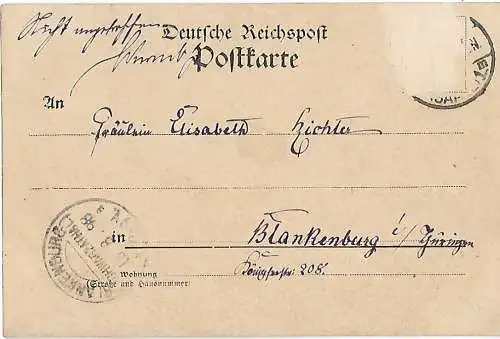 Nicht angetroffen
Deutsche Reichspost
Postkarte
An
Fräulein Elisabeth Richter
in Blankenburg i/Thüringen
Wohnung
(Straße und Hausnummer
Königstr. 208.
BLANKENBURG
SCHWARZATHAL
98